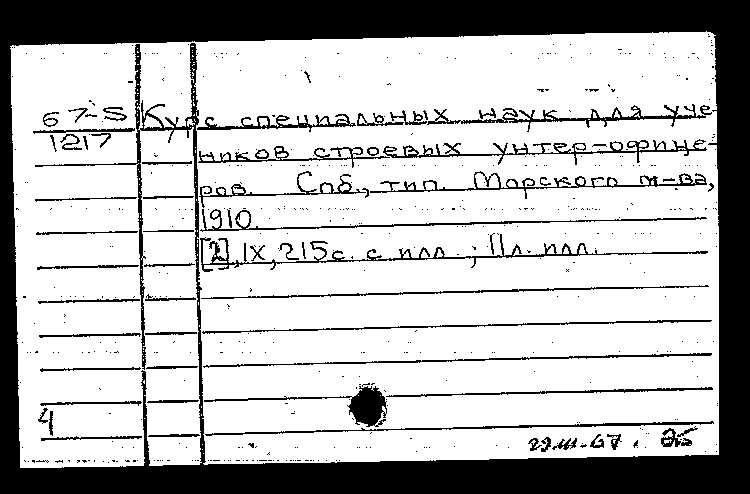 67-5 Курс специальных наук для уче-
1217
ников строевых унтер-офице-
ров. Спб., тип. Морского м-ва,
1910.
[2], IX, 215с. с илл.; 1 л. илл.
4
29.III.67.